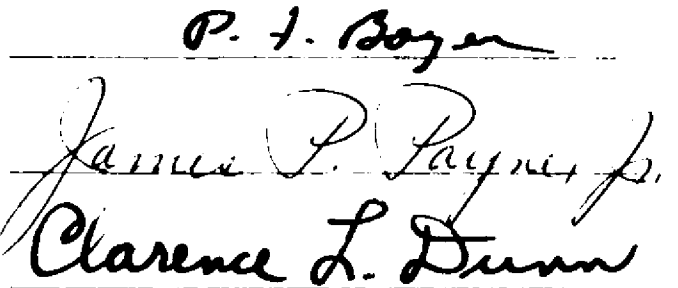 P. F. Boyer
James P. Payne, Jr.
Clarence L. Dunn